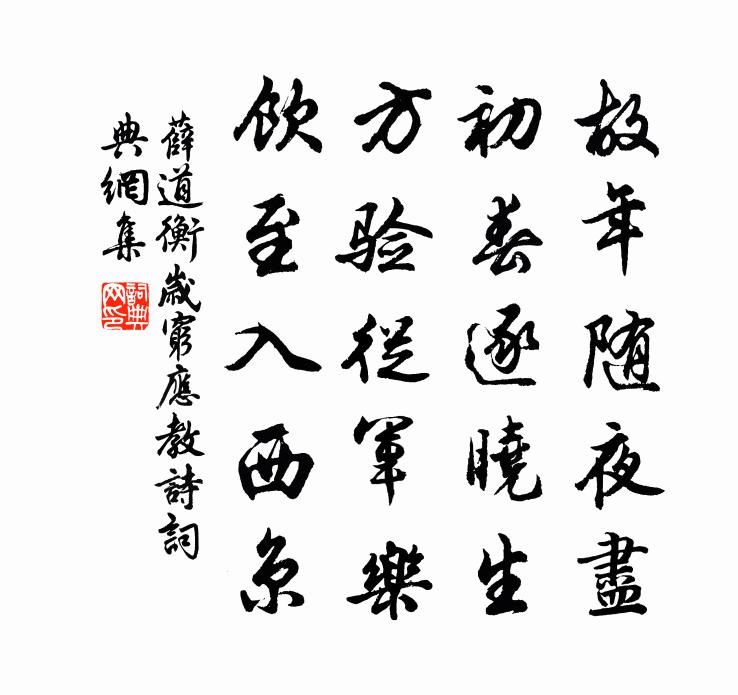 故年随夜盡
初春逐曉生
方验從軍樂
飲至入西京
薛道衡歲窮應教詩詞
典網集
詞典
网印